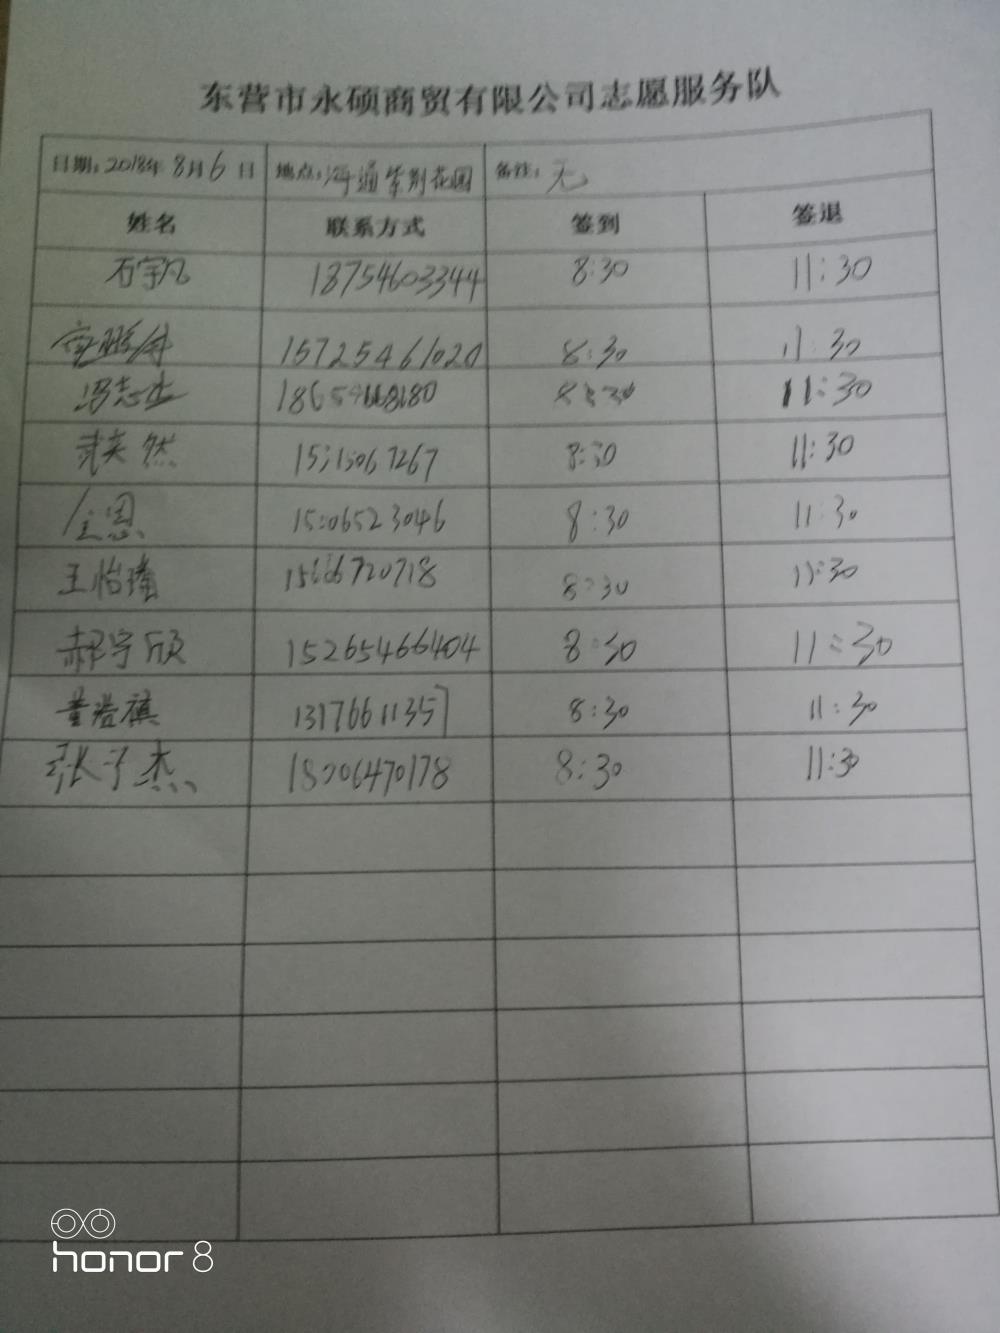 东营市永硕商贸有限公司志愿服务队
日期：2018年 8月6日 地点：海通紫荆花园 备注：无
姓名 联系方式 签到 签退
石宇凡 18754603344 8:30 11:30
15725461020 8:30 11:30
冯志 8:30 11:30
武英然 7267 8:30 11:30
金恩 15:06523046 8:30 11:30
王怡 8:30 11:30
郝宇欣 15265466404 8:30 11:30
董溢祺 13176611357 8:30 11:30
张子杰 18706470178 8:30 11:30
honor 8